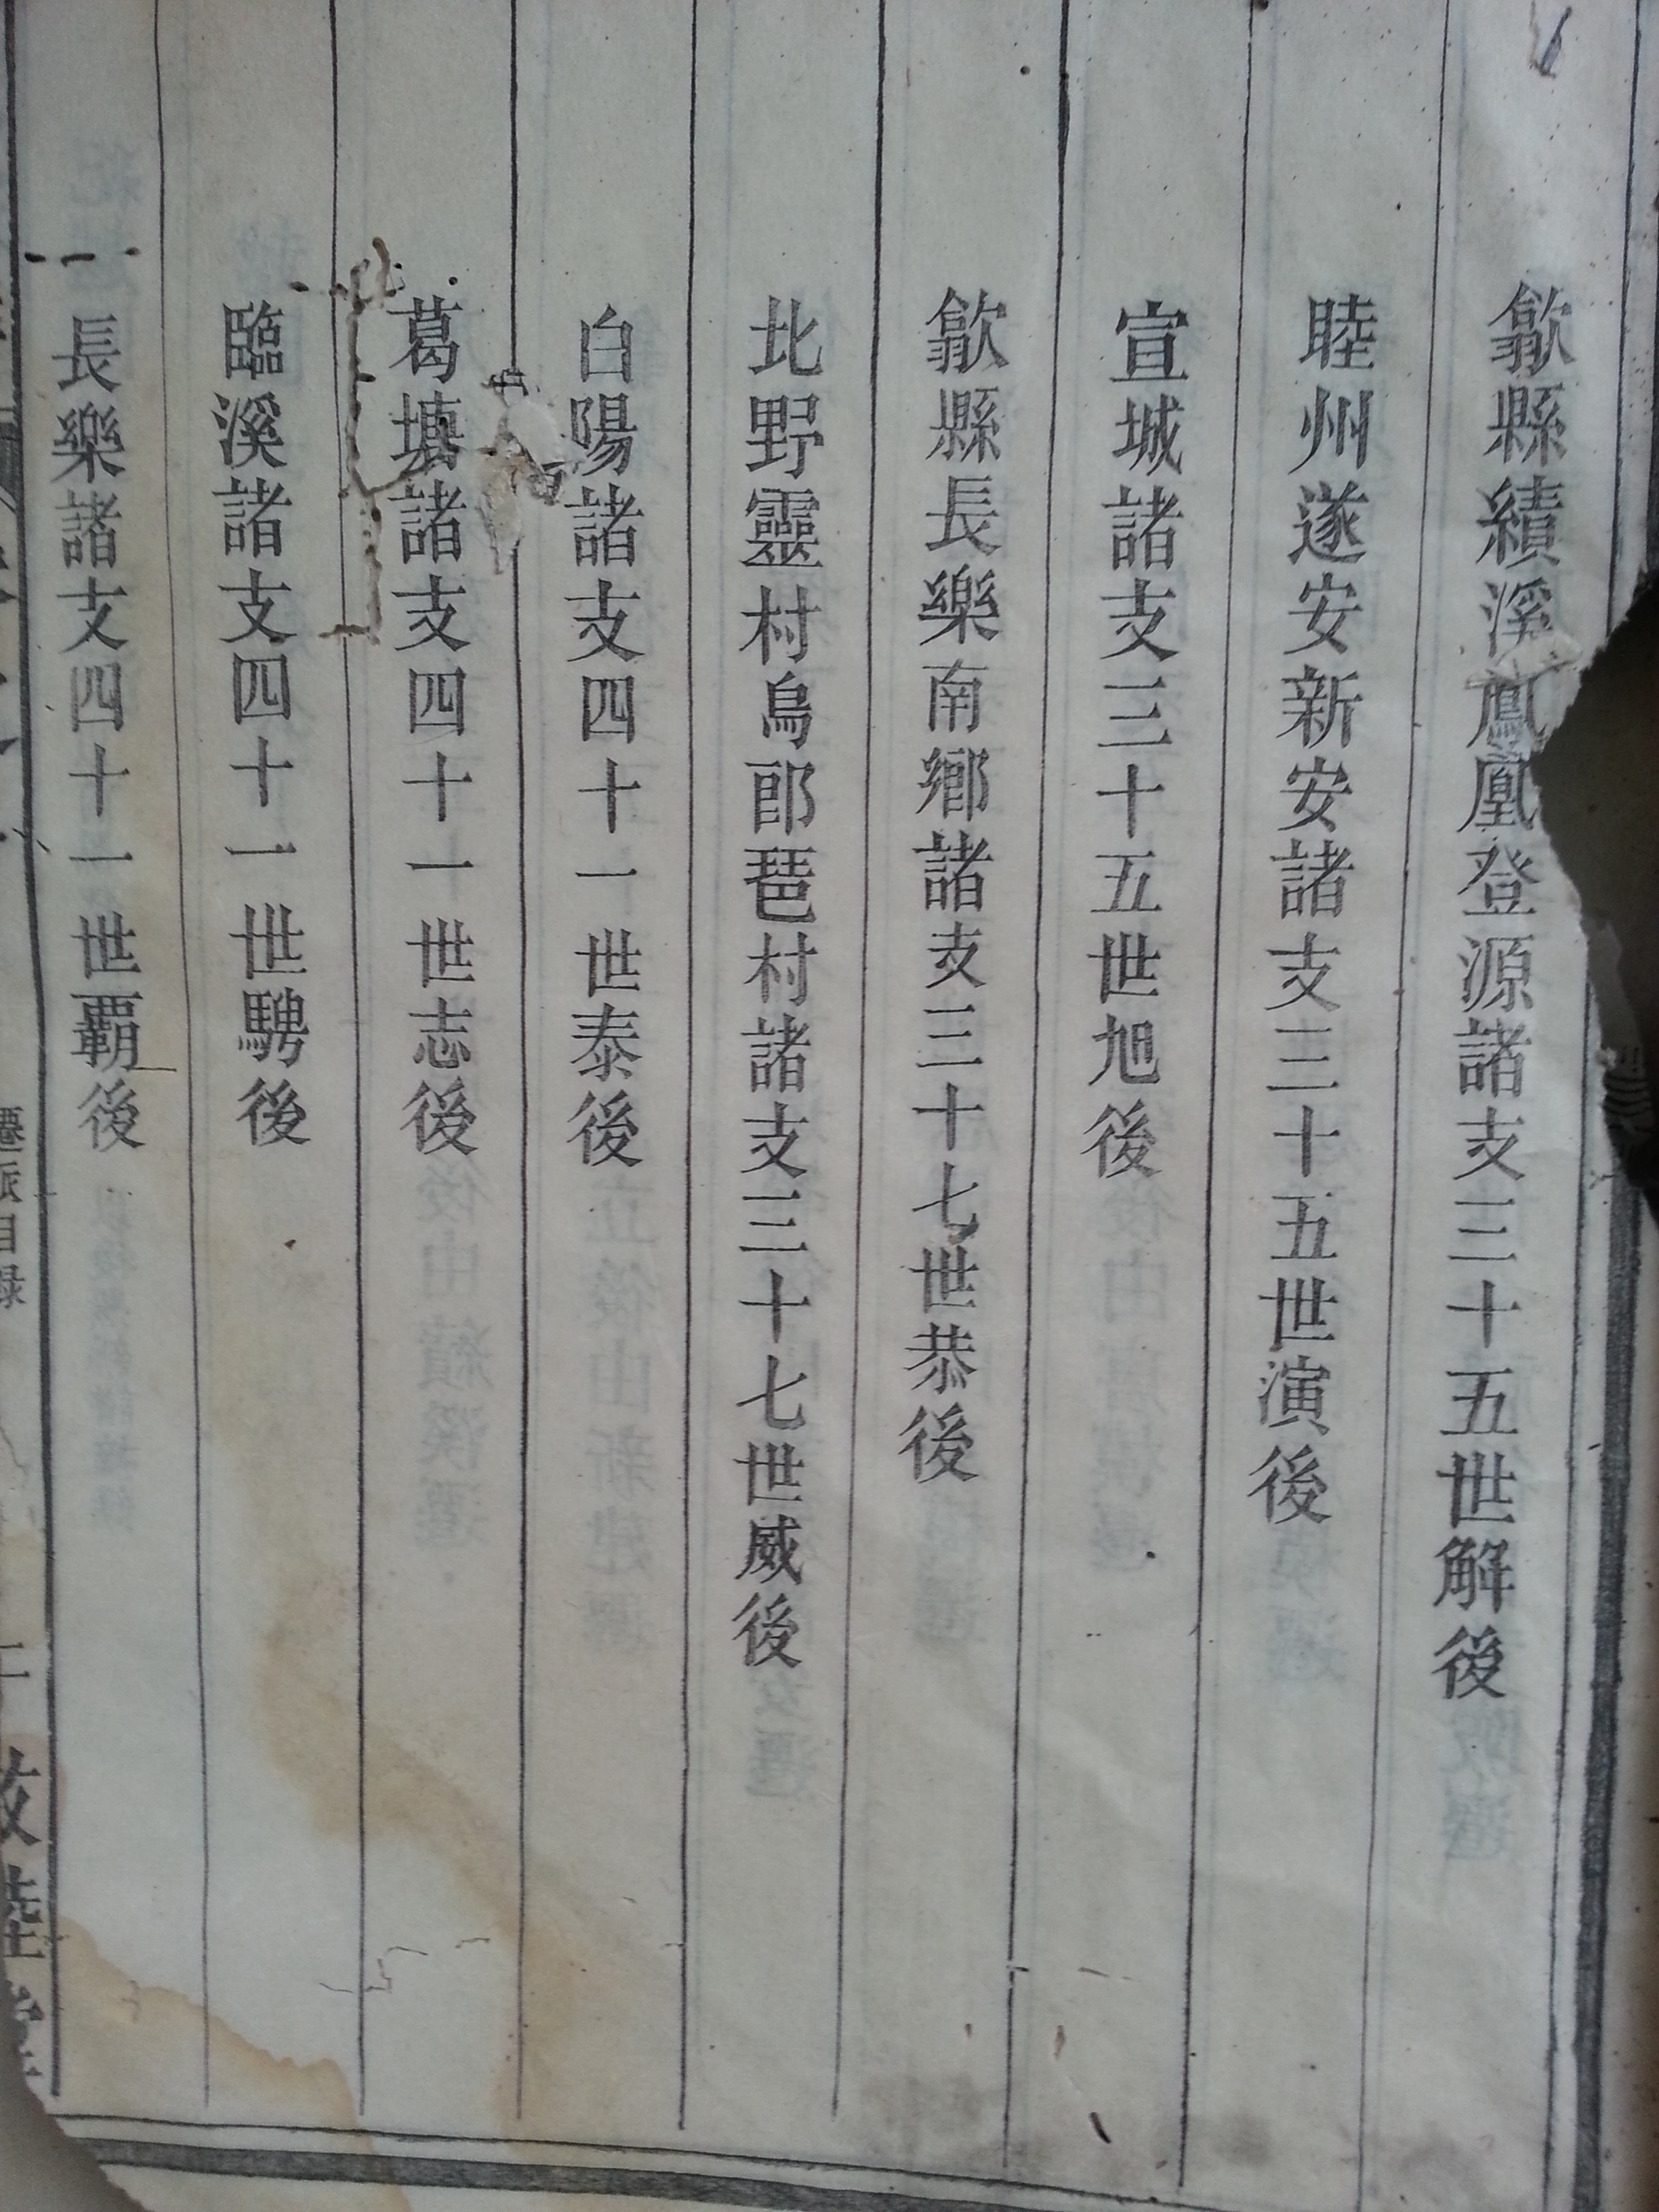 歙縣績溪鳳凰登源諸支三十五世解後
睦州遂安新安諸支三十五世演後
宣城諸支三十五世旭後
歙縣長樂南鄉諸支三十七世恭後
北野靈村烏郎琶村諸支三十七世威後
白陽諸支四十一世泰後
葛塘諸支四十一世志後
臨溪諸支四十一世騁後
長樂諸支四十一世霸後
遷派目録